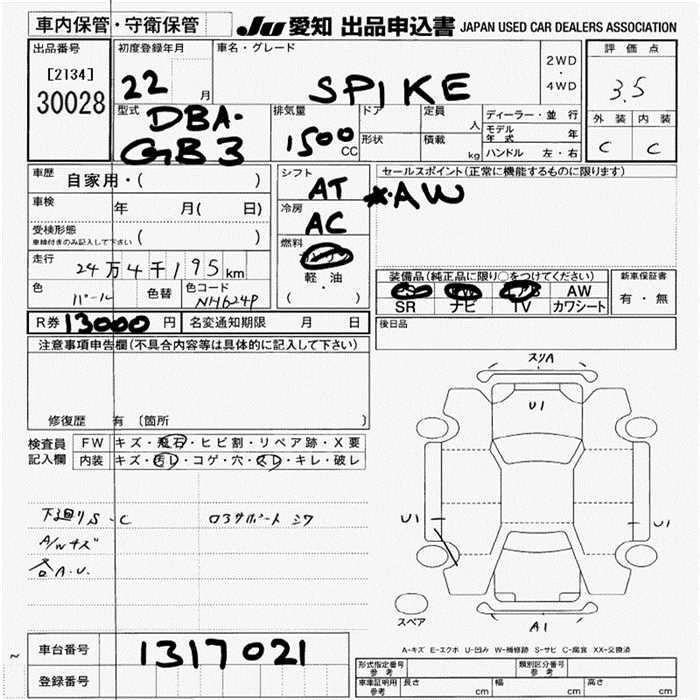 車内保管・守衛保管
JU 愛知 出品申込書 JAPAN USED CAR DEALERS ASSOCIATION
出品番号
[2134]
30028
初度登録年月
22 月
車名・グレード
SPIKE
2WD
・
4WD
評価点
3.5
外装 内装
C C
型式
DBA-
GB3
排気量
1500 CC
ドア
形状
定員
人
積載
kg
ディーラー・並行
モデル年式 年
ハンドル 左・右
車歴
自家用・( )
車検
年 月( 日)
受検形態
車検付きのみ記入して下さい ( )
走行
24万4千195km
色
パール
色替
色コード
NH624P
シフト
AT
冷房
AC
燃料
軽油
( ・ )
セールスポイント(正常に機能するものに限ります)
*AW
装備品(純正品に限り○をつけてください)
PS PW エアB AW
SR ナビ TV カワシート
新車保証書
有・無
R券 13000 円
名変通知期限 月 日
後日品
注意事項申告欄(不具合内容等は具体的に記入して下さい)
修復歴 有 〔箇所 〕
検査員
記入欄
FW キズ・飛石・ヒビ割・リペア跡・X要
内装 キズ・汚レ・コゲ・穴・スレ・キレ・破レ
下廻りS・C
ロアサポートシワ
A/Wキズ
各A.U.
スリA
U1
U1
U1
A1
スペア
A-キズ E-エクボ U-凹み W-補修跡 S-サビ C-腐食 XX-交換済
車台番号
1317021
登録番号
形式指定番号
参考
類別区分番号
参考
車庫証明用
参考
長さ cm
幅 cm
高さ cm